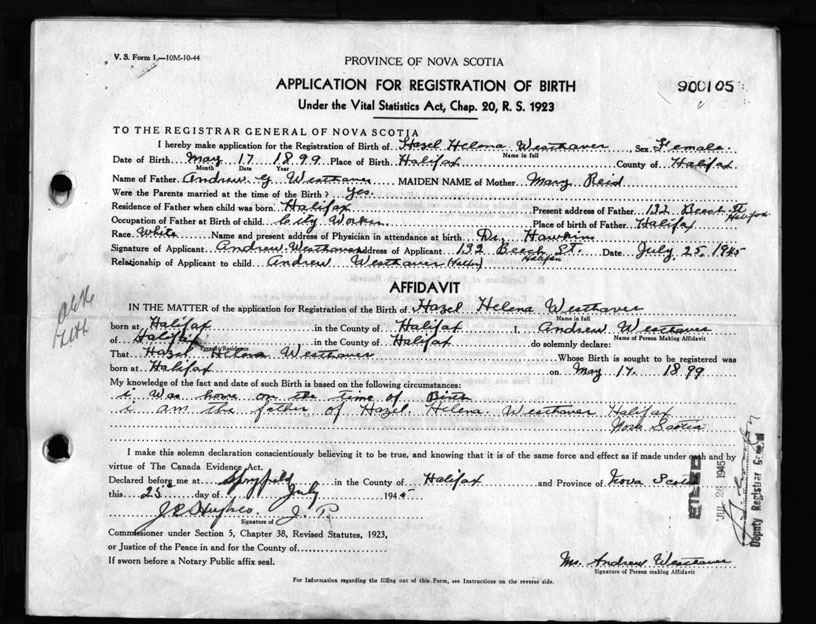 V. S. Form 1,—10M-10-44
PROVINCE OF NOVA SCOTIA
APPLICATION FOR REGISTRATION OF BIRTH
900105
Under the Vital Statistics Act, Chap. 20, R. S. 1923
TO THE REGISTRAR GENERAL OF NOVA SCOTIA
I hereby make application for the Registration of Birth of Hazel Helena Westhaver Sex Female.
Name in full
Date of Birth May 17 1899 Place of Birth Halifax County of Halifax
Month Date Year
Name of Father Andrew G Westhaver MAIDEN NAME of Mother Mary Reid
Were the Parents married at the time of the Birth? yes.
Residence of Father when child was born Halifax Present address of Father 132 Beech St Halifax
Occupation of Father at Birth of child City Worker Place of birth of Father Halifax
Race White Name and present address of Physician in attendance at birth Dr. Hawkins
Signature of Applicant Andrew Westhaver Address of Applicant 132 Beech St. Halifax Date July 25 1945
Relationship of Applicant to child Andrew Westhaver
AFFIDAVIT
IN THE MATTER of the application for Registration of the Birth of Hazel Helena Westhaver
Name in full
born at Halifax in the County of Halifax I, Andrew Westhaver
Name of Person Making Affidavit
of Halifax in the County of Halifax do solemnly declare:
That Hazel Helena Westhaver Whose Birth is sought to be registered was
born at Halifax on May 17. 1899
My knowledge of the fact and date of such Birth is based on the following circumstances:
i was home on the time of Birth
i am the father of Hazel Helena Westhaver Halifax
Nova Scotia
I make this solemn declaration conscientiously believing it to be true, and knowing that it is of the same force and effect as if made under oath and by
virtue of The Canada Evidence Act.
Declared before me at Spryfield in the County of Halifax and Province of Nova Scotia
this 25 day of July 1945
J. P.
Signature of
Commissioner under Section 5, Chapter 38, Revised Statutes, 1923,
or Justice of the Peace in and for the County of
If sworn before a Notary Public affix seal.
Mr. Andrew Westhaver
Signature of Person making Affidavit
For Information regarding the filling out of this Form, see Instructions on the reverse side.
FILED
JUL 28 1945
Deputy Registrar General